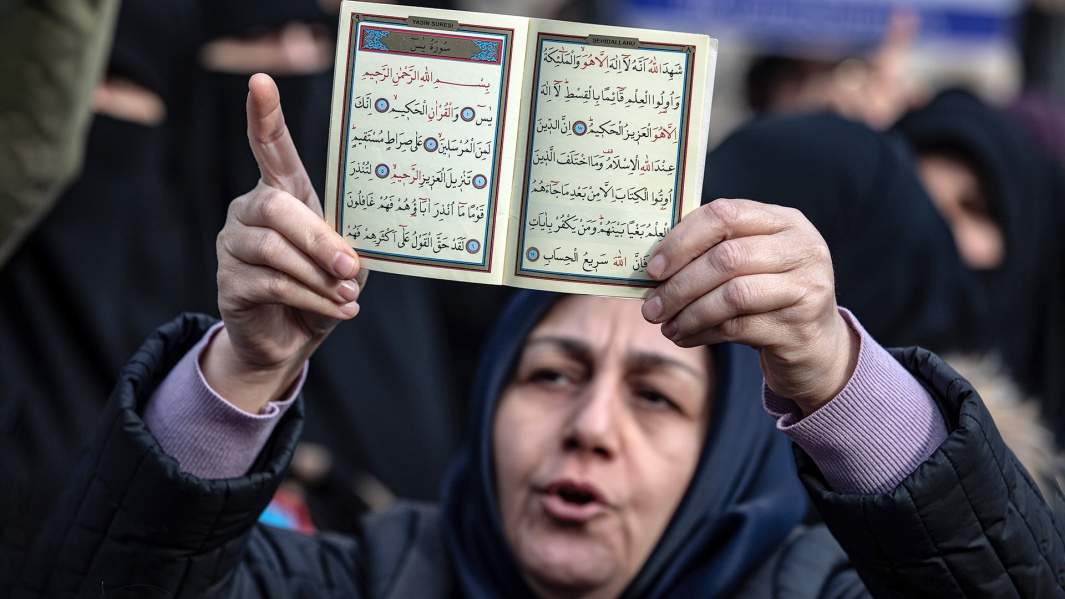 ŞEHİDALLAHU
شَهِدَ اللّٰهُ اَنَّهُ لَٓا اِلٰهَ اِلَّا هُوَ وَالْمَلٰٓئِكَةُ
وَاُولُوا الْعِلْمِ قَٓائِمًا بِالْقِسْطِ لَٓا اِلٰهَ
اِلَّا هُوَ الْعَزِيزُ الْحَكِيمُ اِنَّ الدِّينَ
عِنْدَ اللّٰهِ الْاِسْلَامُ وَمَا اخْتَلَفَ الَّذِينَ
اُوتُوا الْكِتَابَ اِلَّا مِنْ بَعْدِ مَا جَٓاءَهُمُ
الْعِلْمُ بَغْيًا بَيْنَهُمْ وَمَنْ يَكْفُرْ بِاٰيَاتِ
فَاِنَّ اللّٰهَ سَرِيعُ الْحِسَابِ
YASİN SURESİ
سُورَةُ يٰسٓ
بِسْمِ اللّٰهِ الرَّحْمٰنِ الرَّحِيمِ
يٰسٓ ١ وَالْقُرْاٰنِ الْحَكِيمِ ٢ اِنَّكَ
لَمِنَ الْمُرْسَلِينَ ٣ عَلٰى صِرَاطٍ مُسْتَقِيمٍ
٤ تَنْزِيلَ الْعَزِيزِ الرَّحِيمِ ٥ لِتُنْذِرَ
قَوْمًا مَٓا اُنْذِرَ اٰبَٓاؤُهُمْ فَهُمْ غَافِلُونَ
٦ لَقَدْ حَقَّ الْقَوْلُ عَلٰٓى اَكْثَرِهِمْ فَهُمْ